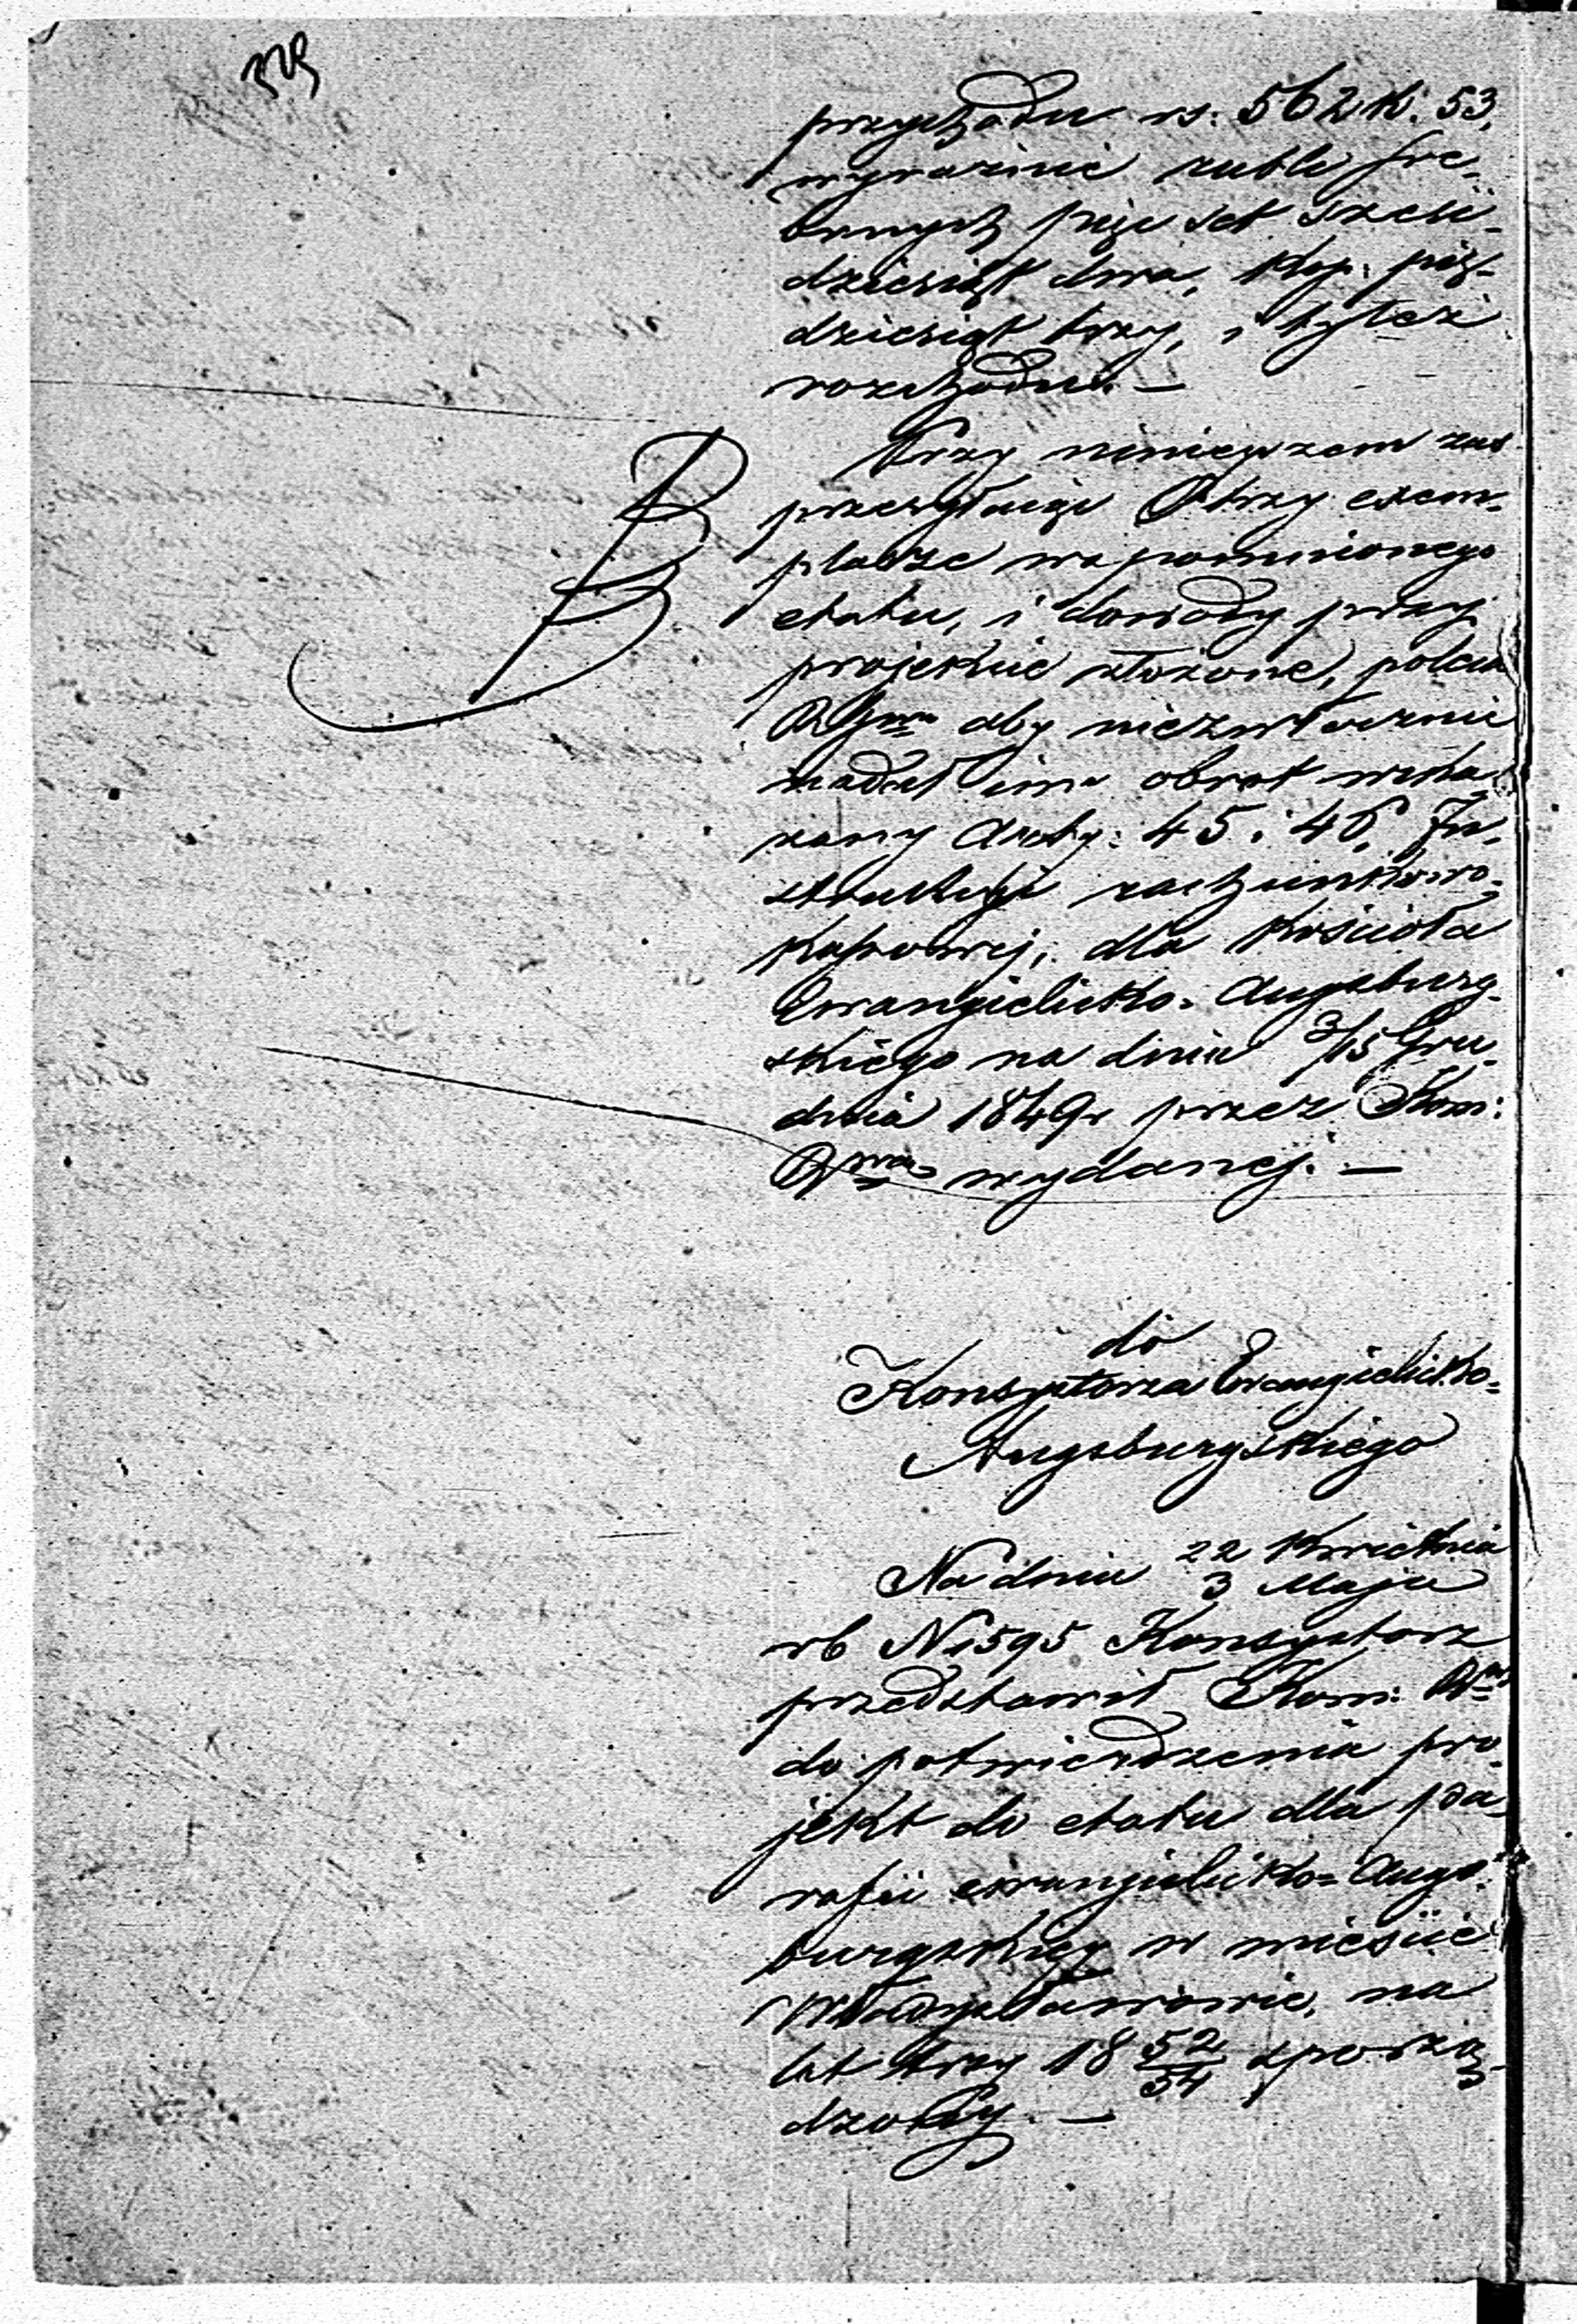 329
przychodu rs: 562 k. 53,
wyraźnie rubli sre-
brnych pięć set sześć-
dziesiąt dwa, kop: pięć-
dziesiąt trzy, i tyleż
rozchodu. —
Przy niniejszem zaś
przesyłając trzy exem-
plarze wspomnionego
etatu, i dowody przy
projekcie złożone, poleca
aby niezwłocznie
nadał im obrot wska-
zany Arty: 45 i 46 In-
strukcyi rachunkowo-
kassowej, dla Kościoła
Ewangielicko-Augsburg-
skiego na dniu 3/15 Gru-
dnia 1849 r przez Kom:
Rwą wydanej. —
do
Konsystorza Ewangielicko-
Augsburgskiego
Na dniu 22 Kwietnia
3 Maja
rb N 595 Konsystorz
przedstawił Kom: Rwej
do potwierdzenia pro-
jekt do etatu dla pa-
rafii ewangielicko-Augs-
burgskiej w mieście
Władysławowie, na
lat trzy 18 52/54 sporzą-
dzony. —